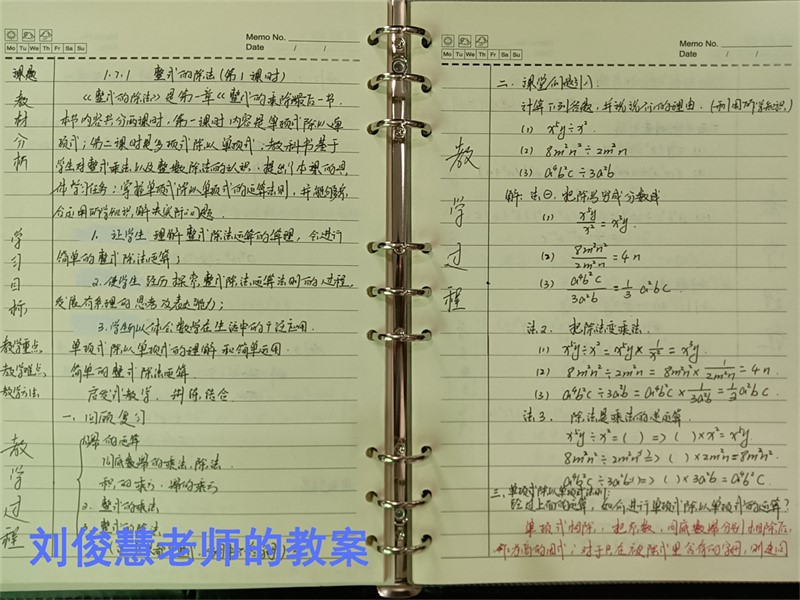 Memo No.
Mo Tu We Th Fr Sa Su
Date / /
课题 1.7.1 整式的除法(第1课时)
教材分析
《整式的除法》是第一章《整式的乘除最后一节.
本节内容书分两课时,第一课时内容是单项式除以单
项式;第二课时是多项式除以单项式.教科书基于
学生对整式乘法以及整数除法的认识,提出了本课的具
体学习任务:掌握单项式除以单项式的运算法则,并能综
合运用所学知识解决实际问题.
学习目标
1. 让学生理解整式除法运算的算理,会进行
简单的整式除法运算;
2. 使学生经历探索整式除法运算法则的过程,
发展有条理的思考及表达能力;
3. 学生体会数学在生活中的广泛应用.
教学重点 单项式除以单项式的理解和简单运用.
教学难点 简单的整式除法运算.
教学方法 启发式教学, 讲练结合
教学过程
一. 回顾复习
幂的运算
同底数幂的乘法,除法.
积的乘方.幂的乘方
2. 整式的乘法
整式的除法
刘俊慧老师的教案
Memo No.
Mo Tu We Th Fr Sa Su
Date / /
教学过程
二. 课堂问题引入:
计算下列各题,并说说你的理由.(利用所学知识)
(1) x⁵y÷x².
(2) 8m²n²÷2m²n
(3) a⁴b²c÷3a²b
解: 法①. 把除写成分数式
(1) x⁵y/x² = x³y.
(2) 8m²n²/2m²n = 4n
(3) a⁴b²c/3a²b = 1/3 a²bc
法2. 把除法变乘法.
(1) x⁵y÷x² = x⁵y × 1/x² = x³y.
(2) 8m²n²÷2m²n = 8m²n² × 1/2m²n = 4n.
(3) a⁴b²c÷3a²b = a⁴b²c × 1/3a²b = 1/3 a²bc
法3. 除法是乘法的逆运算.
x⁵y÷x² = ( ) => ( )×x² = x⁵y.
8m²n²÷2m²n => ( )×2m²n = 8m²n².
a⁴b²c÷3a²b => ( )×3a²b = a⁴b²c.
三. 单项式除以单项式法则:
经过上面的运算,如何进行单项式除以单项式的运算?
单项式相除,把系数,同底数幂分别相除后,
作为商的因式;对于只在被除式里含有的字母,则连同